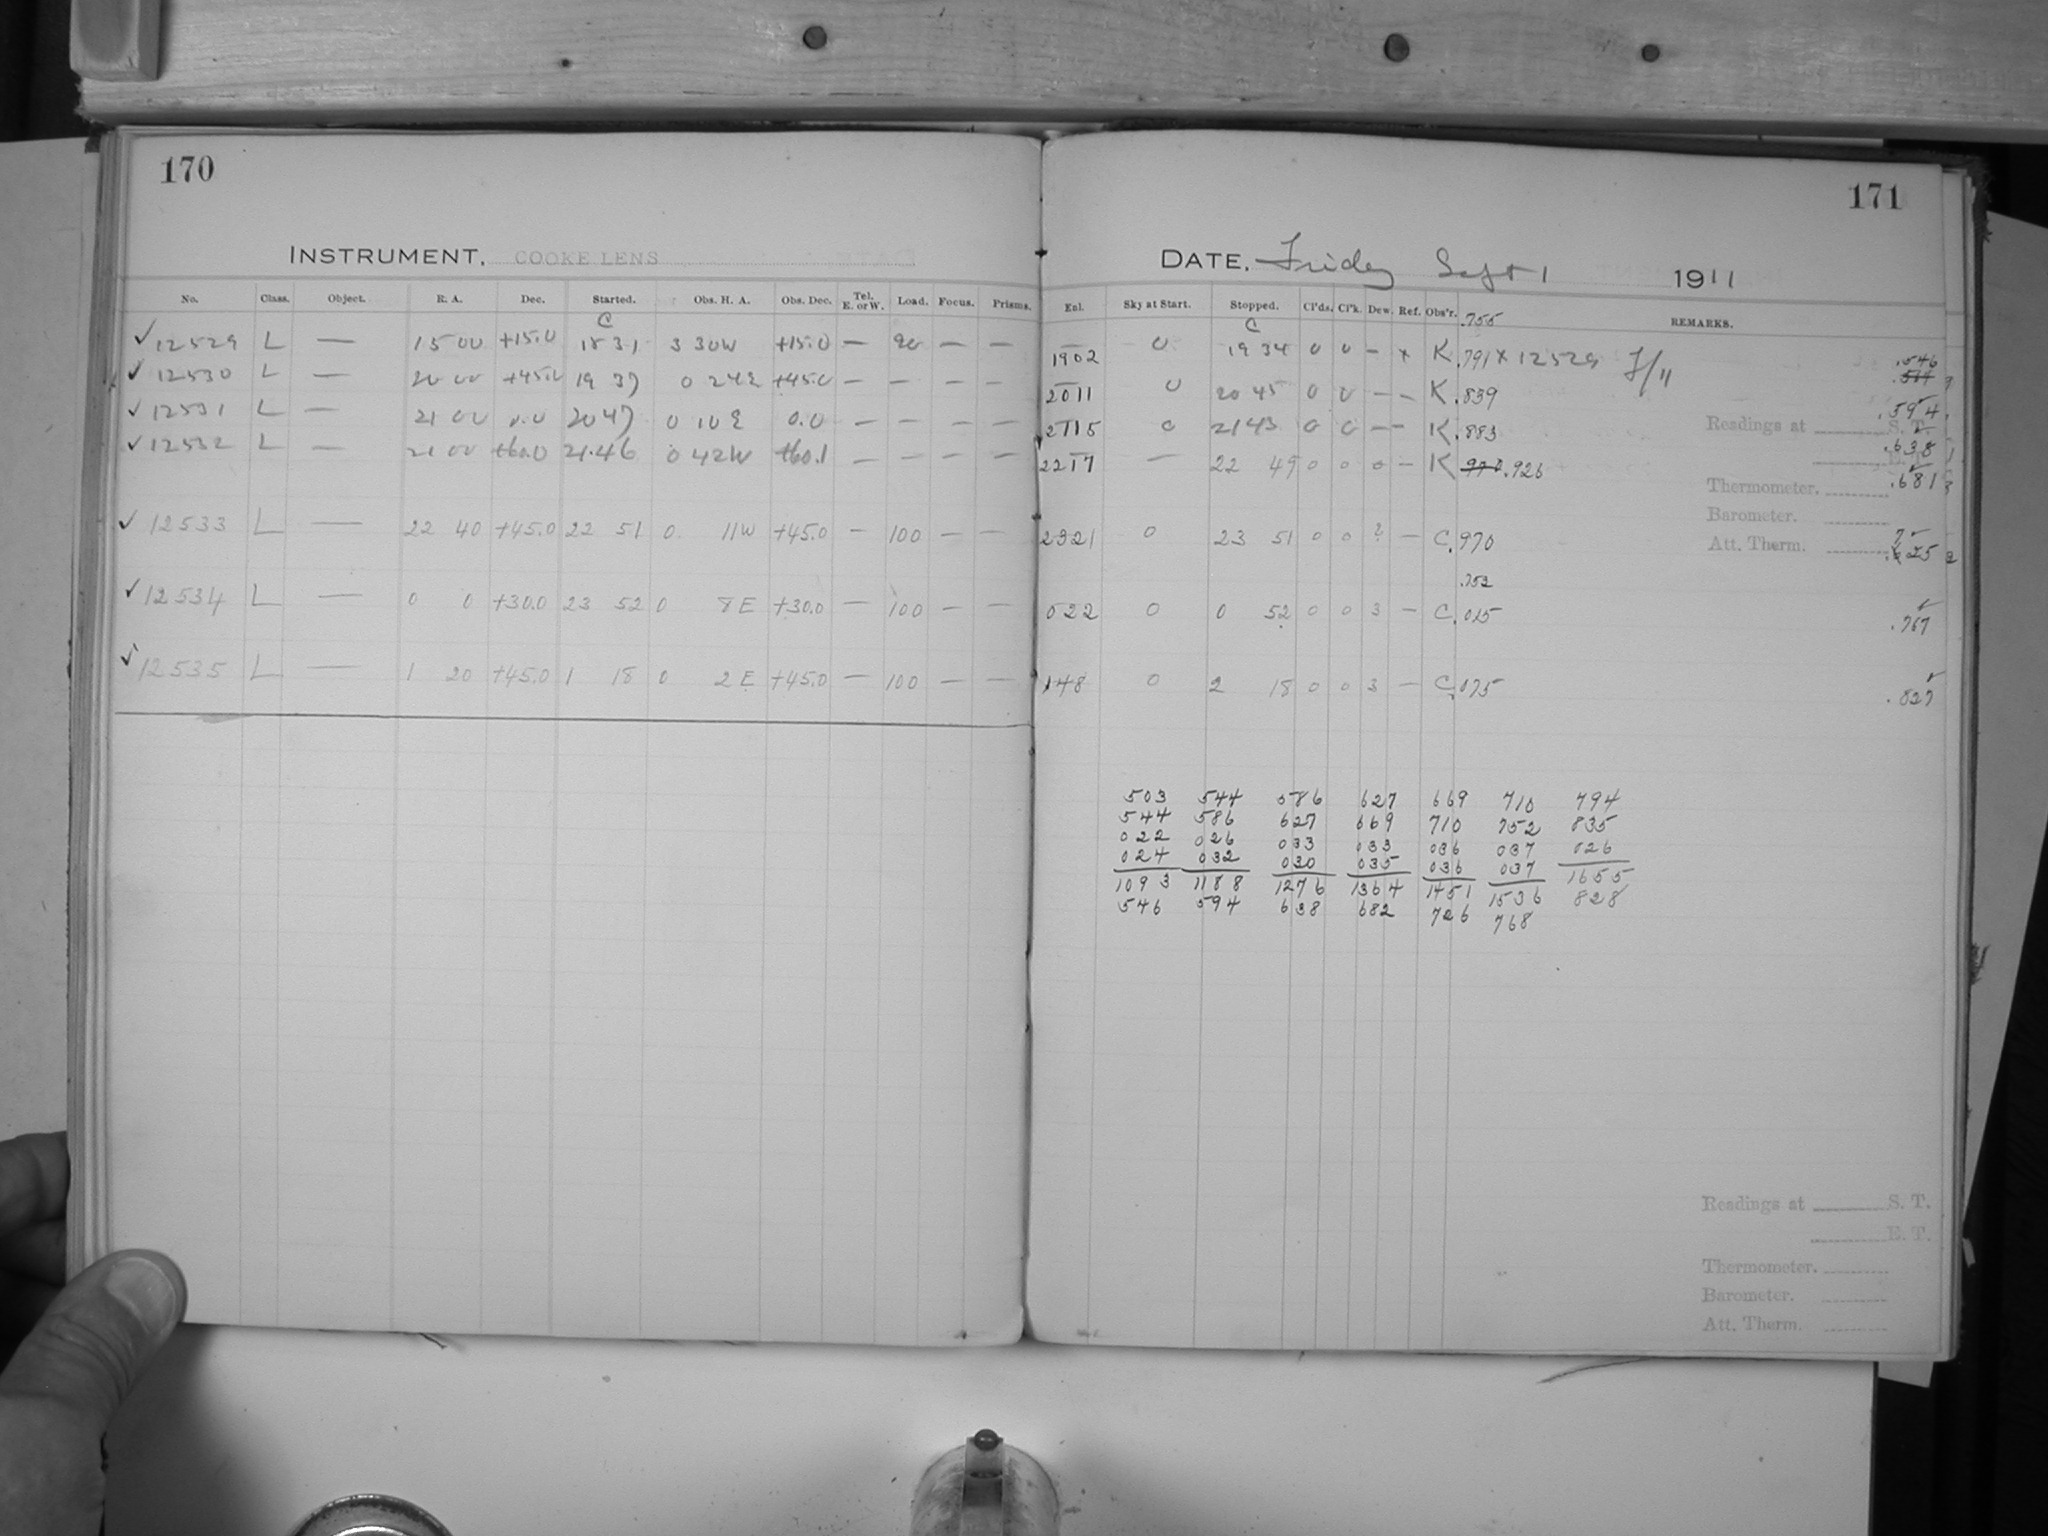 170
INSTRUMENT. COOKE LENS
No. Class. Object. R. A. Dec. Started. Obs. H. A. Obs. Dec. Tel. E. or W. Load. Focus. Prisms.
C
✓ 12529 L — 15 00 +15.0 18 31 3 30W +15.0 — 90 — —
✓ 12530 L — 20 00 +45.0 19 37 0 24E +45.0 — — — —
✓ 12531 L — 21 00 0.0 20 47 0 10E 0.0 — — — —
✓ 12532 L — 21 00 +60.0 21.46 0 42W +60.1 — — — —
✓ 12533 L — 22 40 +45.0 22 51 0 11W +45.0 — 100 — —
✓ 12534 L — 0 0 +30.0 23 52 0 8E +30.0 — 100 — —
✓ 12535 L — 1 20 +45.0 1 18 0 2E +45.0 — 100 — —
171
DATE. Friday Sept 1 1911
Epl. Sky at Start. Stopped. Cl'ds. Cl'k. Dew. Ref. Obs'r. REMARKS.
.755
C
1902 0 19 34 0 0 — x K .791 x 12529 F/11 .546
2011 0 20 45 0 0 — — K .839 .594
2115 0 21 43 0 0 — — K .883 .638
2217 — 22 49 0 0 0 — K .926 .681
2321 0 23 51 0 0 2 — C .970 .725
.752
022 0 0 52 0 0 3 — C .015 .767
148 0 2 18 0 0 3 — C .075 .827
Readings at S. T.
Thermometer.
Barometer.
Att. Therm.
503 544 586 627 669 710 794
544 586 627 669 710 752 835
022 026 033 033 036 037 026
024 032 030 035 036 037
1093 1188 1276 1364 1451 1536 1655
546 594 638 682 726 768 828
Readings at S. T.
E. T.
Thermometer.
Barometer.
Att. Therm.